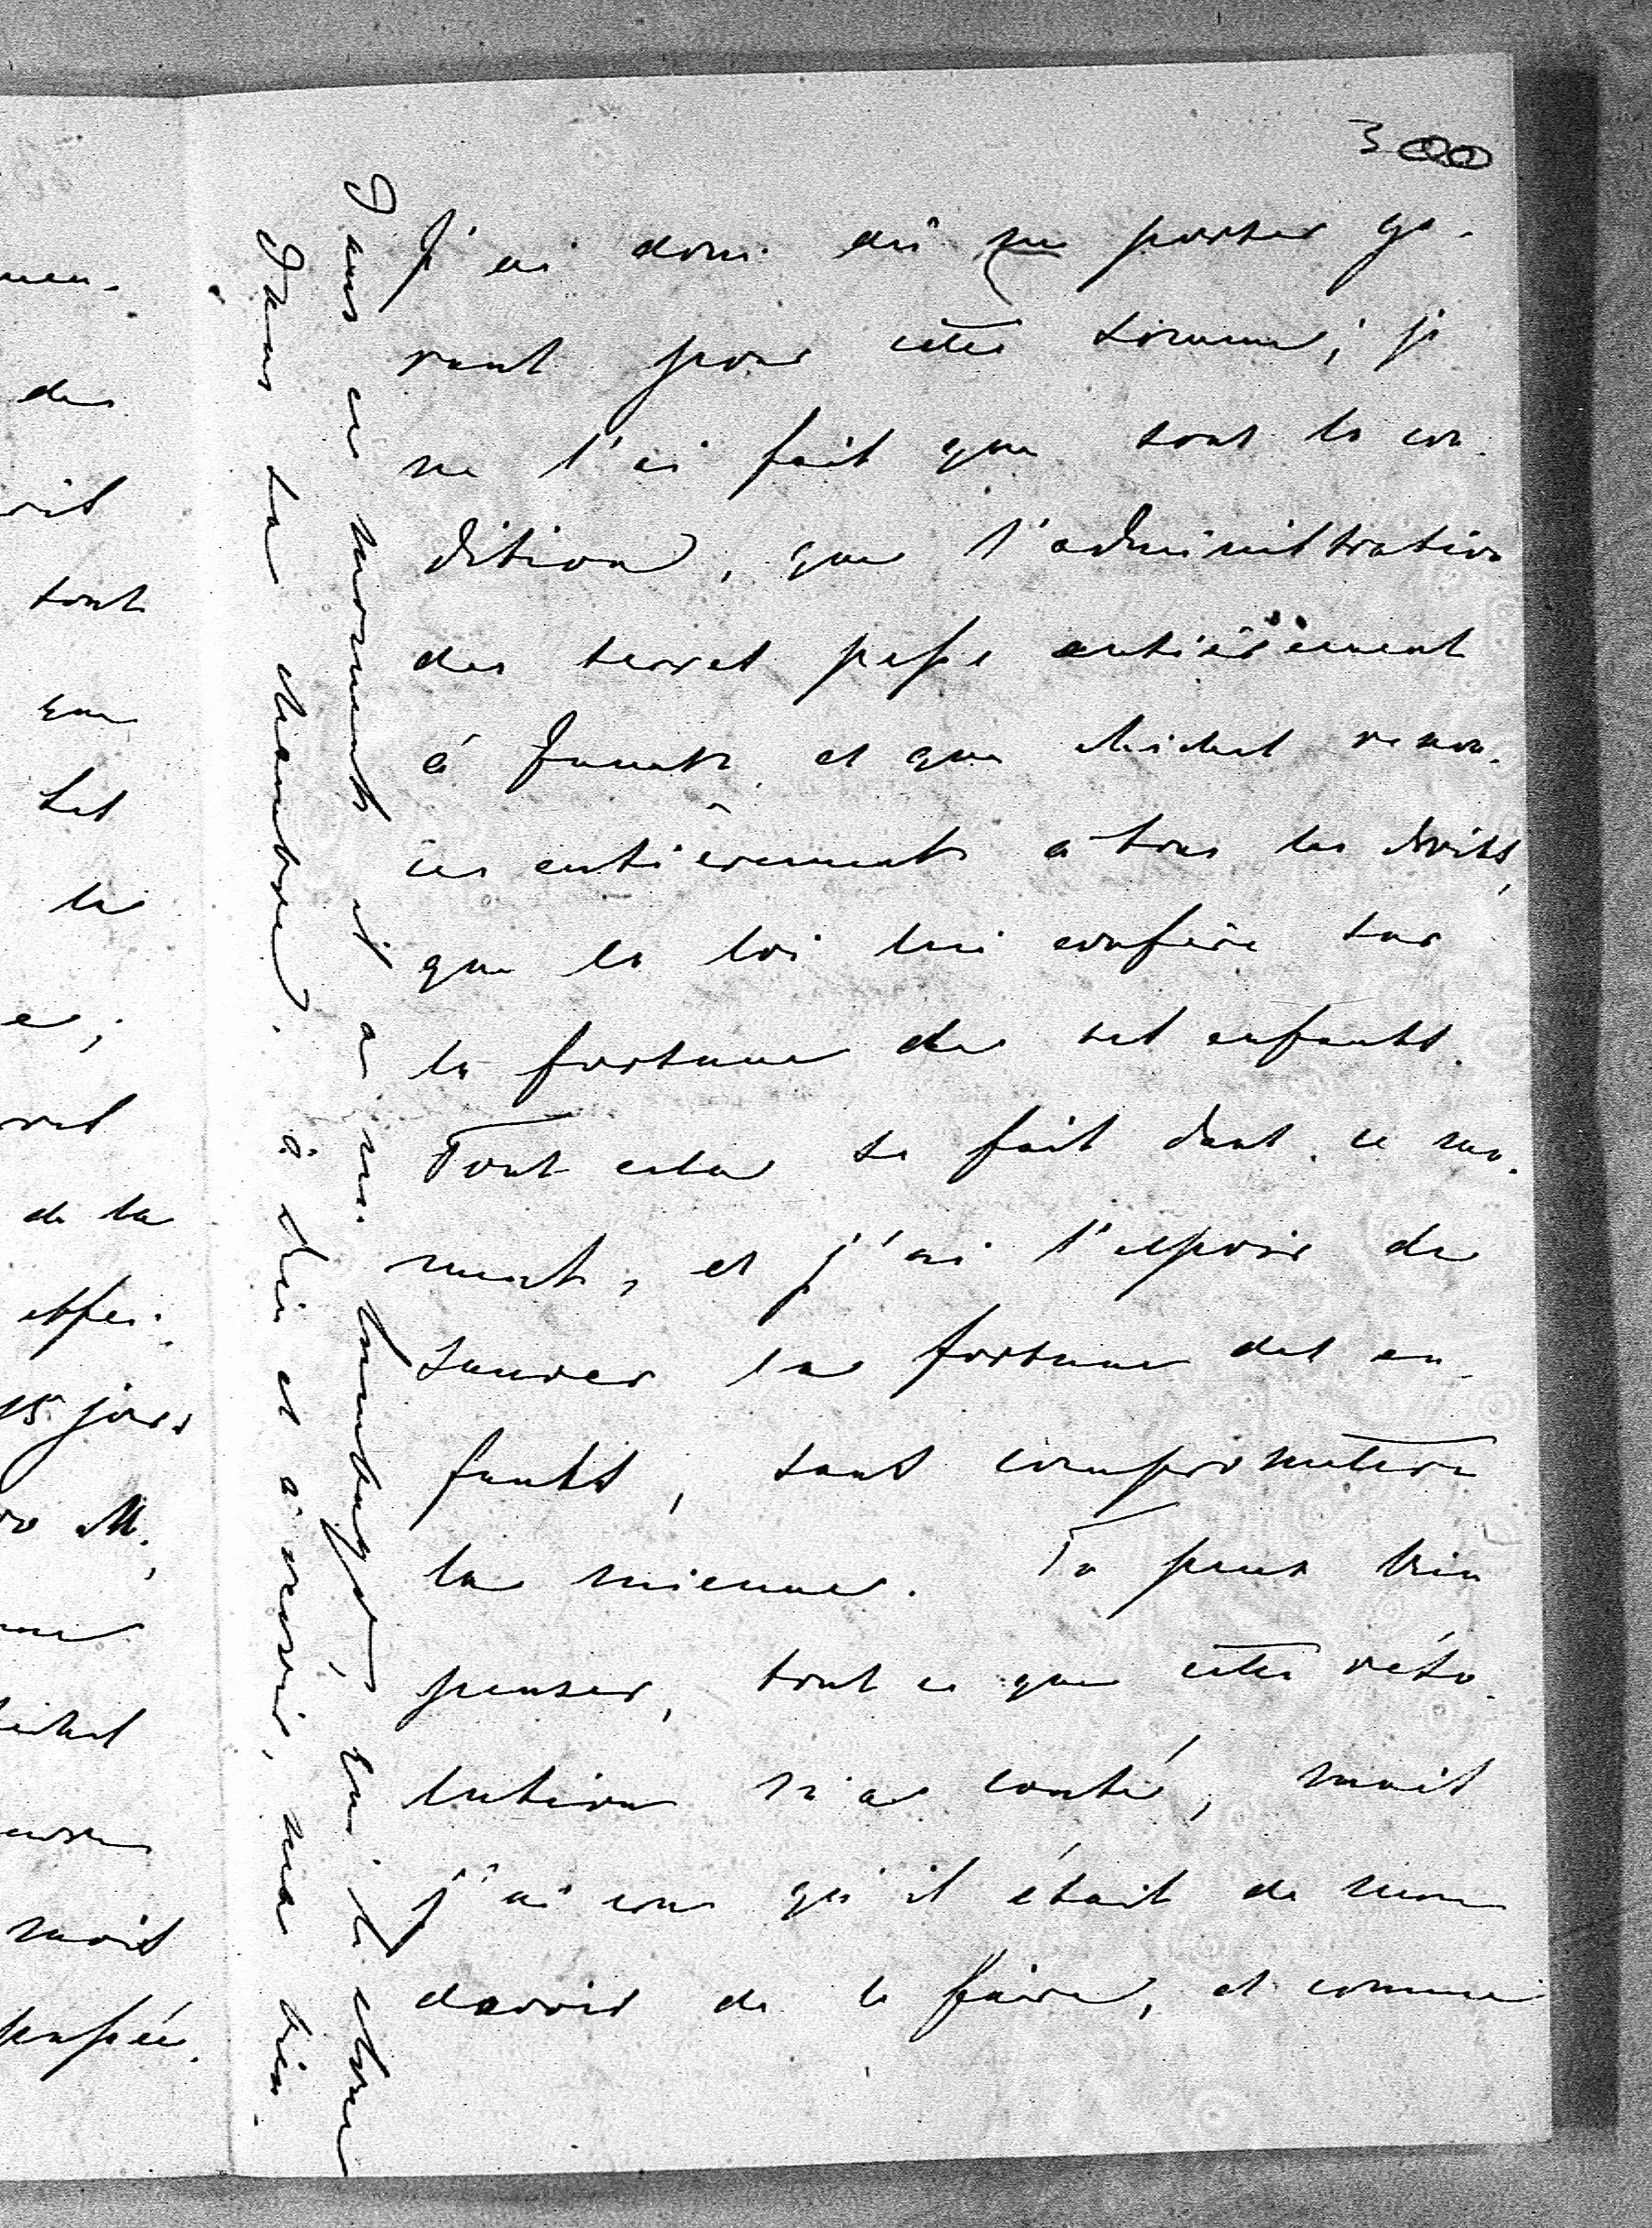 300
J'ai donc dû me porter ga-
rant pour cette somme; je
ne l'ai fait que sous la con-
dition, que l'administration
des terres passe entièrement
à et que Michel renon-
ce entièrement à tous les droits,
que la loi lui confère sur
la fortune de ses enfants.
Tout cela se fait dans ce mo-
ment, et j'ai l'espoir de
sauver la fortune des en-
fants, sans compromettre
la mienne. Tu peux bien
penser, tout ce que cette réso-
lution m'a couté, mais
j'ai cru qu'il était de mon
devoir de le faire, et comme
Dans ce moment il a un lumbago, qui le
dans sa chambre. à Dieu et à revoir, ma bien
men-
de
tout
que
la
de la
15 jours
M.,
mais